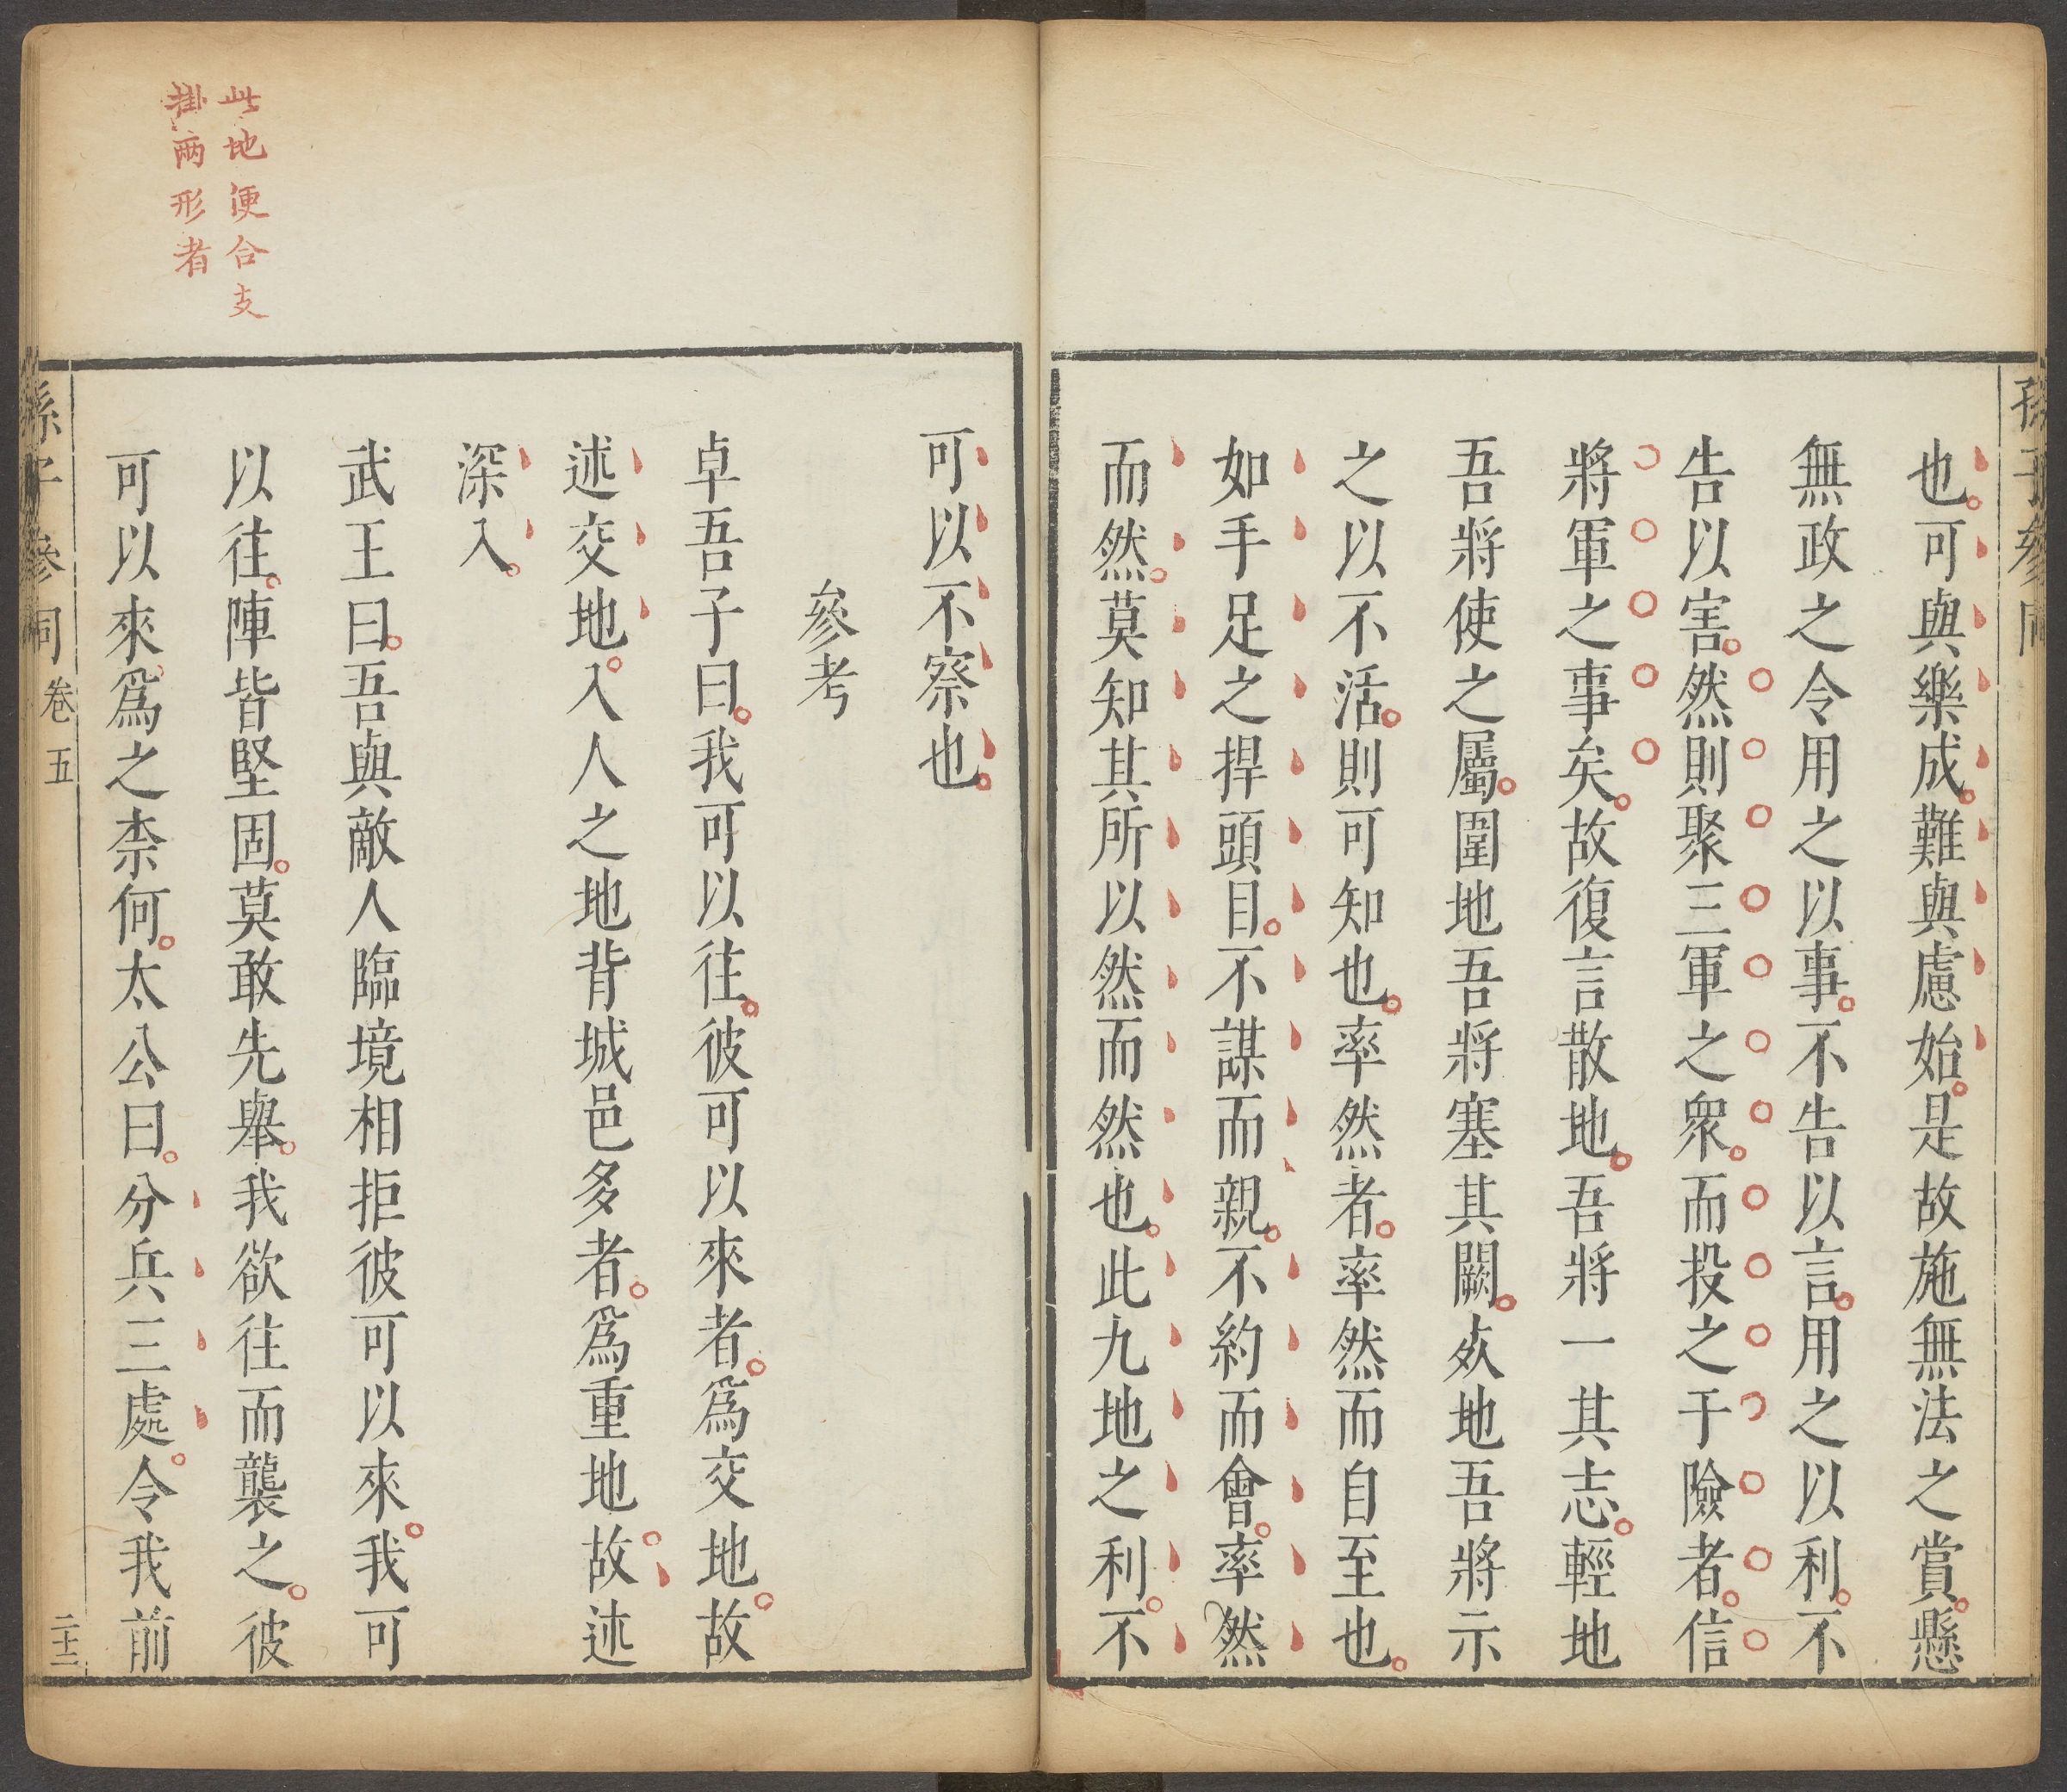 孫子參同
也可與樂成難與慮始是故施無法之賞懸
無政之令用之以事不告以言用之以利不
告以害然則聚三軍之衆而投之于險者信
將軍之事矣故復言散地吾將一其志輕地
吾將使之屬圍地吾將塞其闕㱔地吾將示
之以不活則可知也率然者率然而自至也
如手足之捍頭目不謀而親不約而會率然
而然莫知其所以然而然也此九地之利不
可以不察也
參考
卓吾子曰我可以往彼可以來者爲交地故
述交地入人之地背城邑多者爲重地故述
深入
武王曰吾與敵人臨境相拒彼可以來我可
以往陣皆堅固莫敢先舉我欲往而襲之彼
可以來爲之柰何太公曰分兵三處令我前
此地便合支
掛兩形者
孫子參同 卷五 二十二